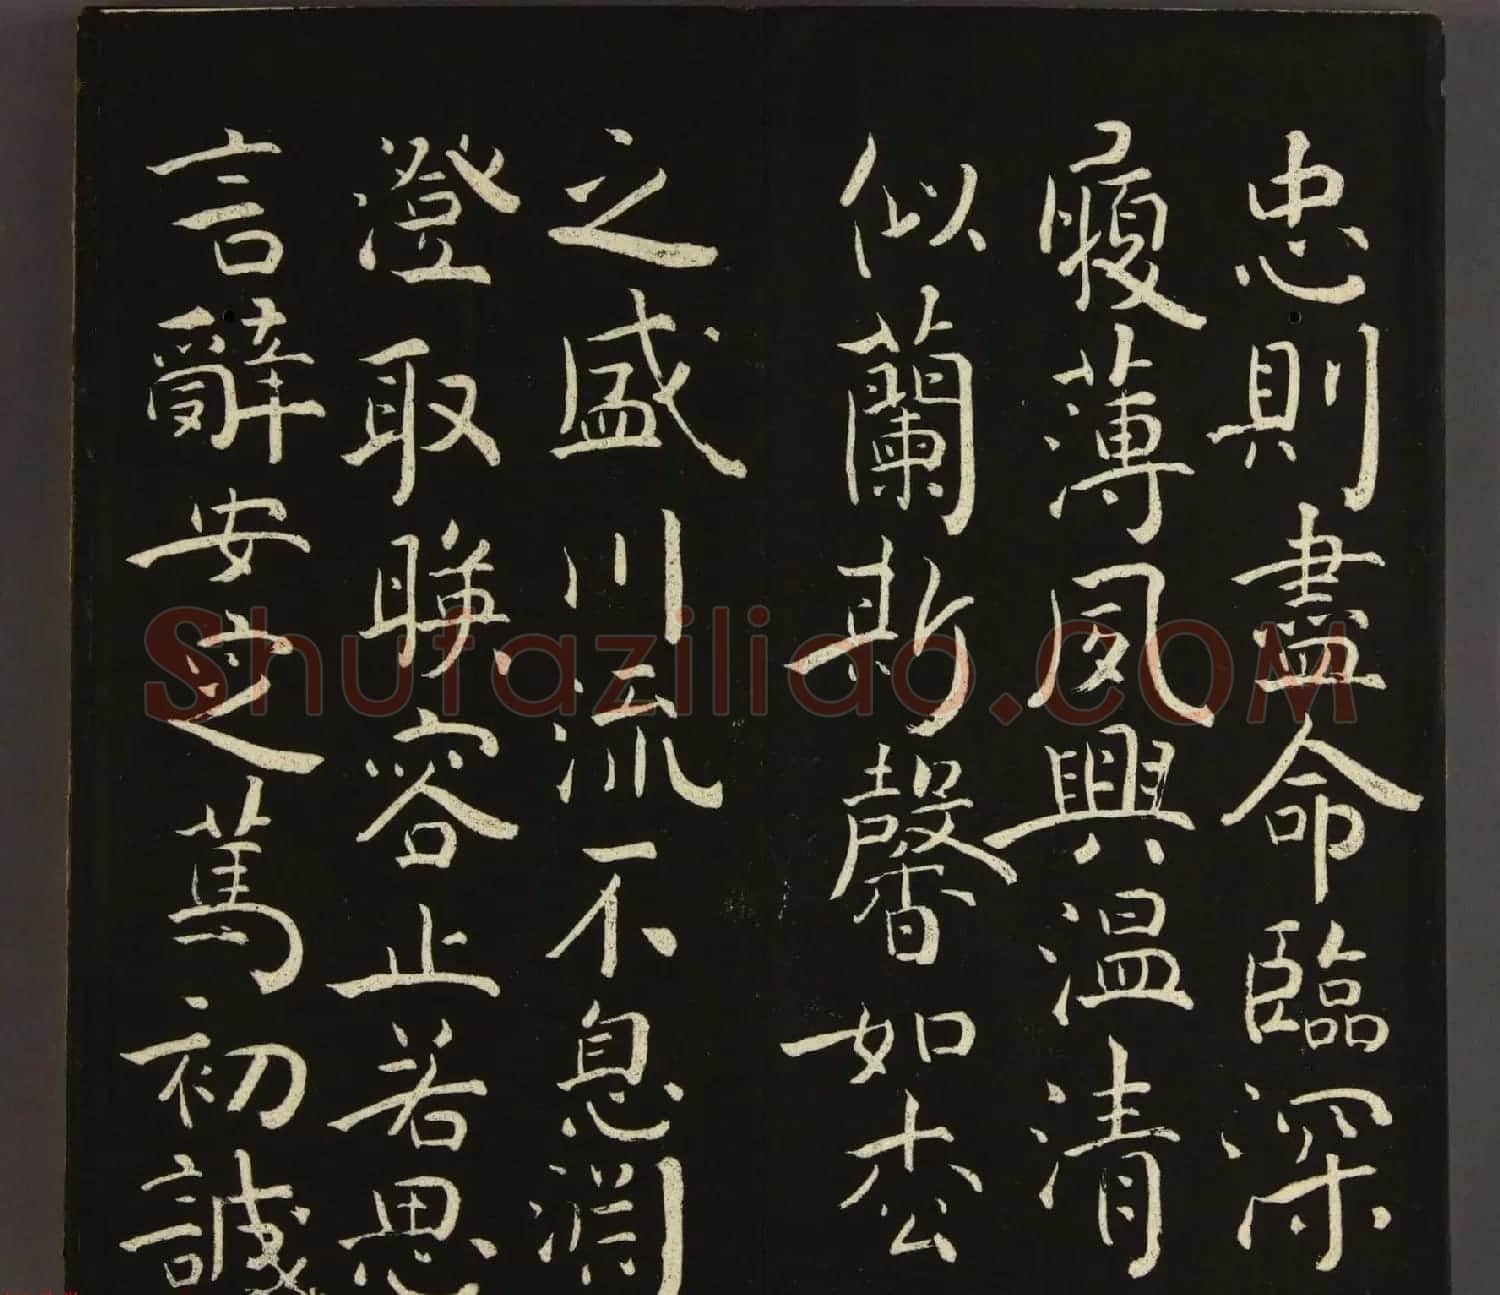 忠則盡命臨深
履薄夙興温清
似蘭斯馨如松
之盛川流不息淵
澄取暎容止若思
言辭安定篤初誠
Shufazilido.COM